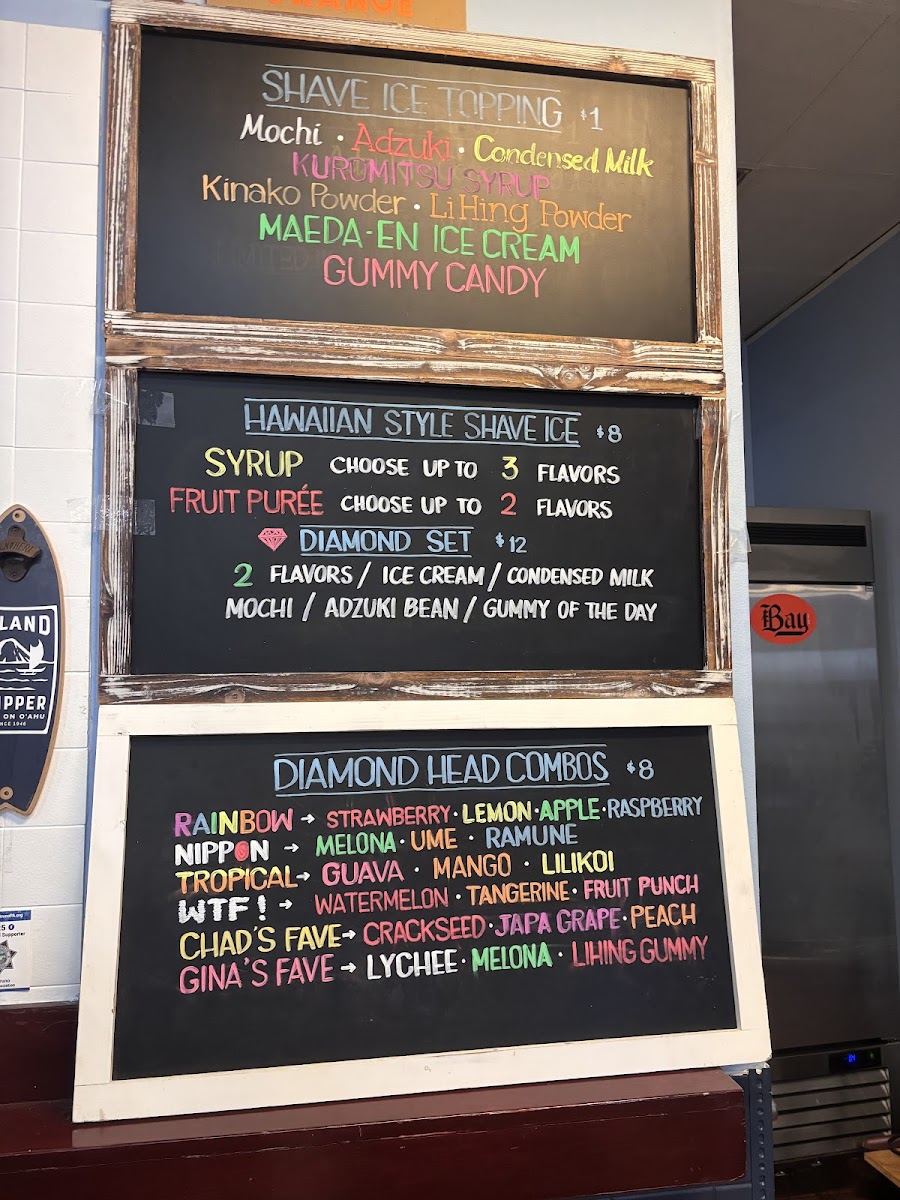 ORANGE
SHAVE ICE TOPPING $1
Mochi · Adzuki · Condensed Milk
KUROMITSU SYRUP
Kinako Powder · LiHing Powder
MAEDA-EN ICE CREAM
GUMMY CANDY
HAWAIIAN STYLE SHAVE ICE $8
SYRUP CHOOSE UP TO 3 FLAVORS
FRUIT PURÉE CHOOSE UP TO 2 FLAVORS
DIAMOND SET $12
2 FLAVORS / ICE CREAM / CONDENSED MILK
MOCHI / ADZUKI BEAN / GUMMY OF THE DAY
DIAMOND HEAD COMBOS $8
RAINBOW → STRAWBERRY · LEMON · APPLE · RASPBERRY
NIPPON → MELONA · UME · RAMUNE
TROPICAL → GUAVA · MANGO · LILIKOI
WTF! → WATERMELON · TANGERINE · FRUIT PUNCH
CHAD'S FAVE → CRACKSEED · JAPA GRAPE · PEACH
GINA'S FAVE → LYCHEE · MELONA · LIHING GUMMY
LAND
IPPER
ON O'AHU
NCE 1946
Bay
Supporter